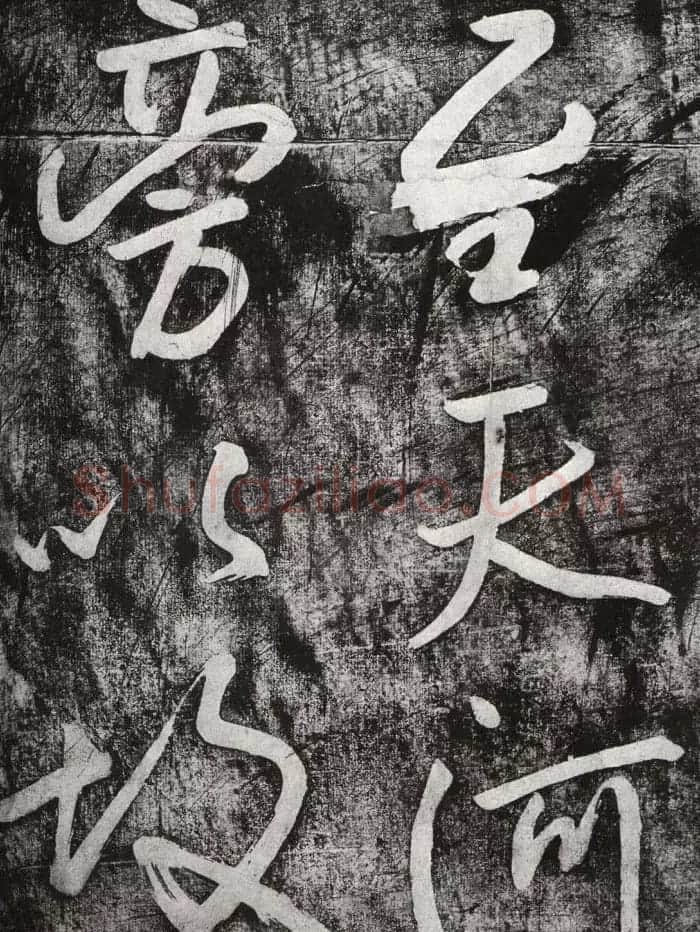 至天河
旁以
Shufaziliao.COM